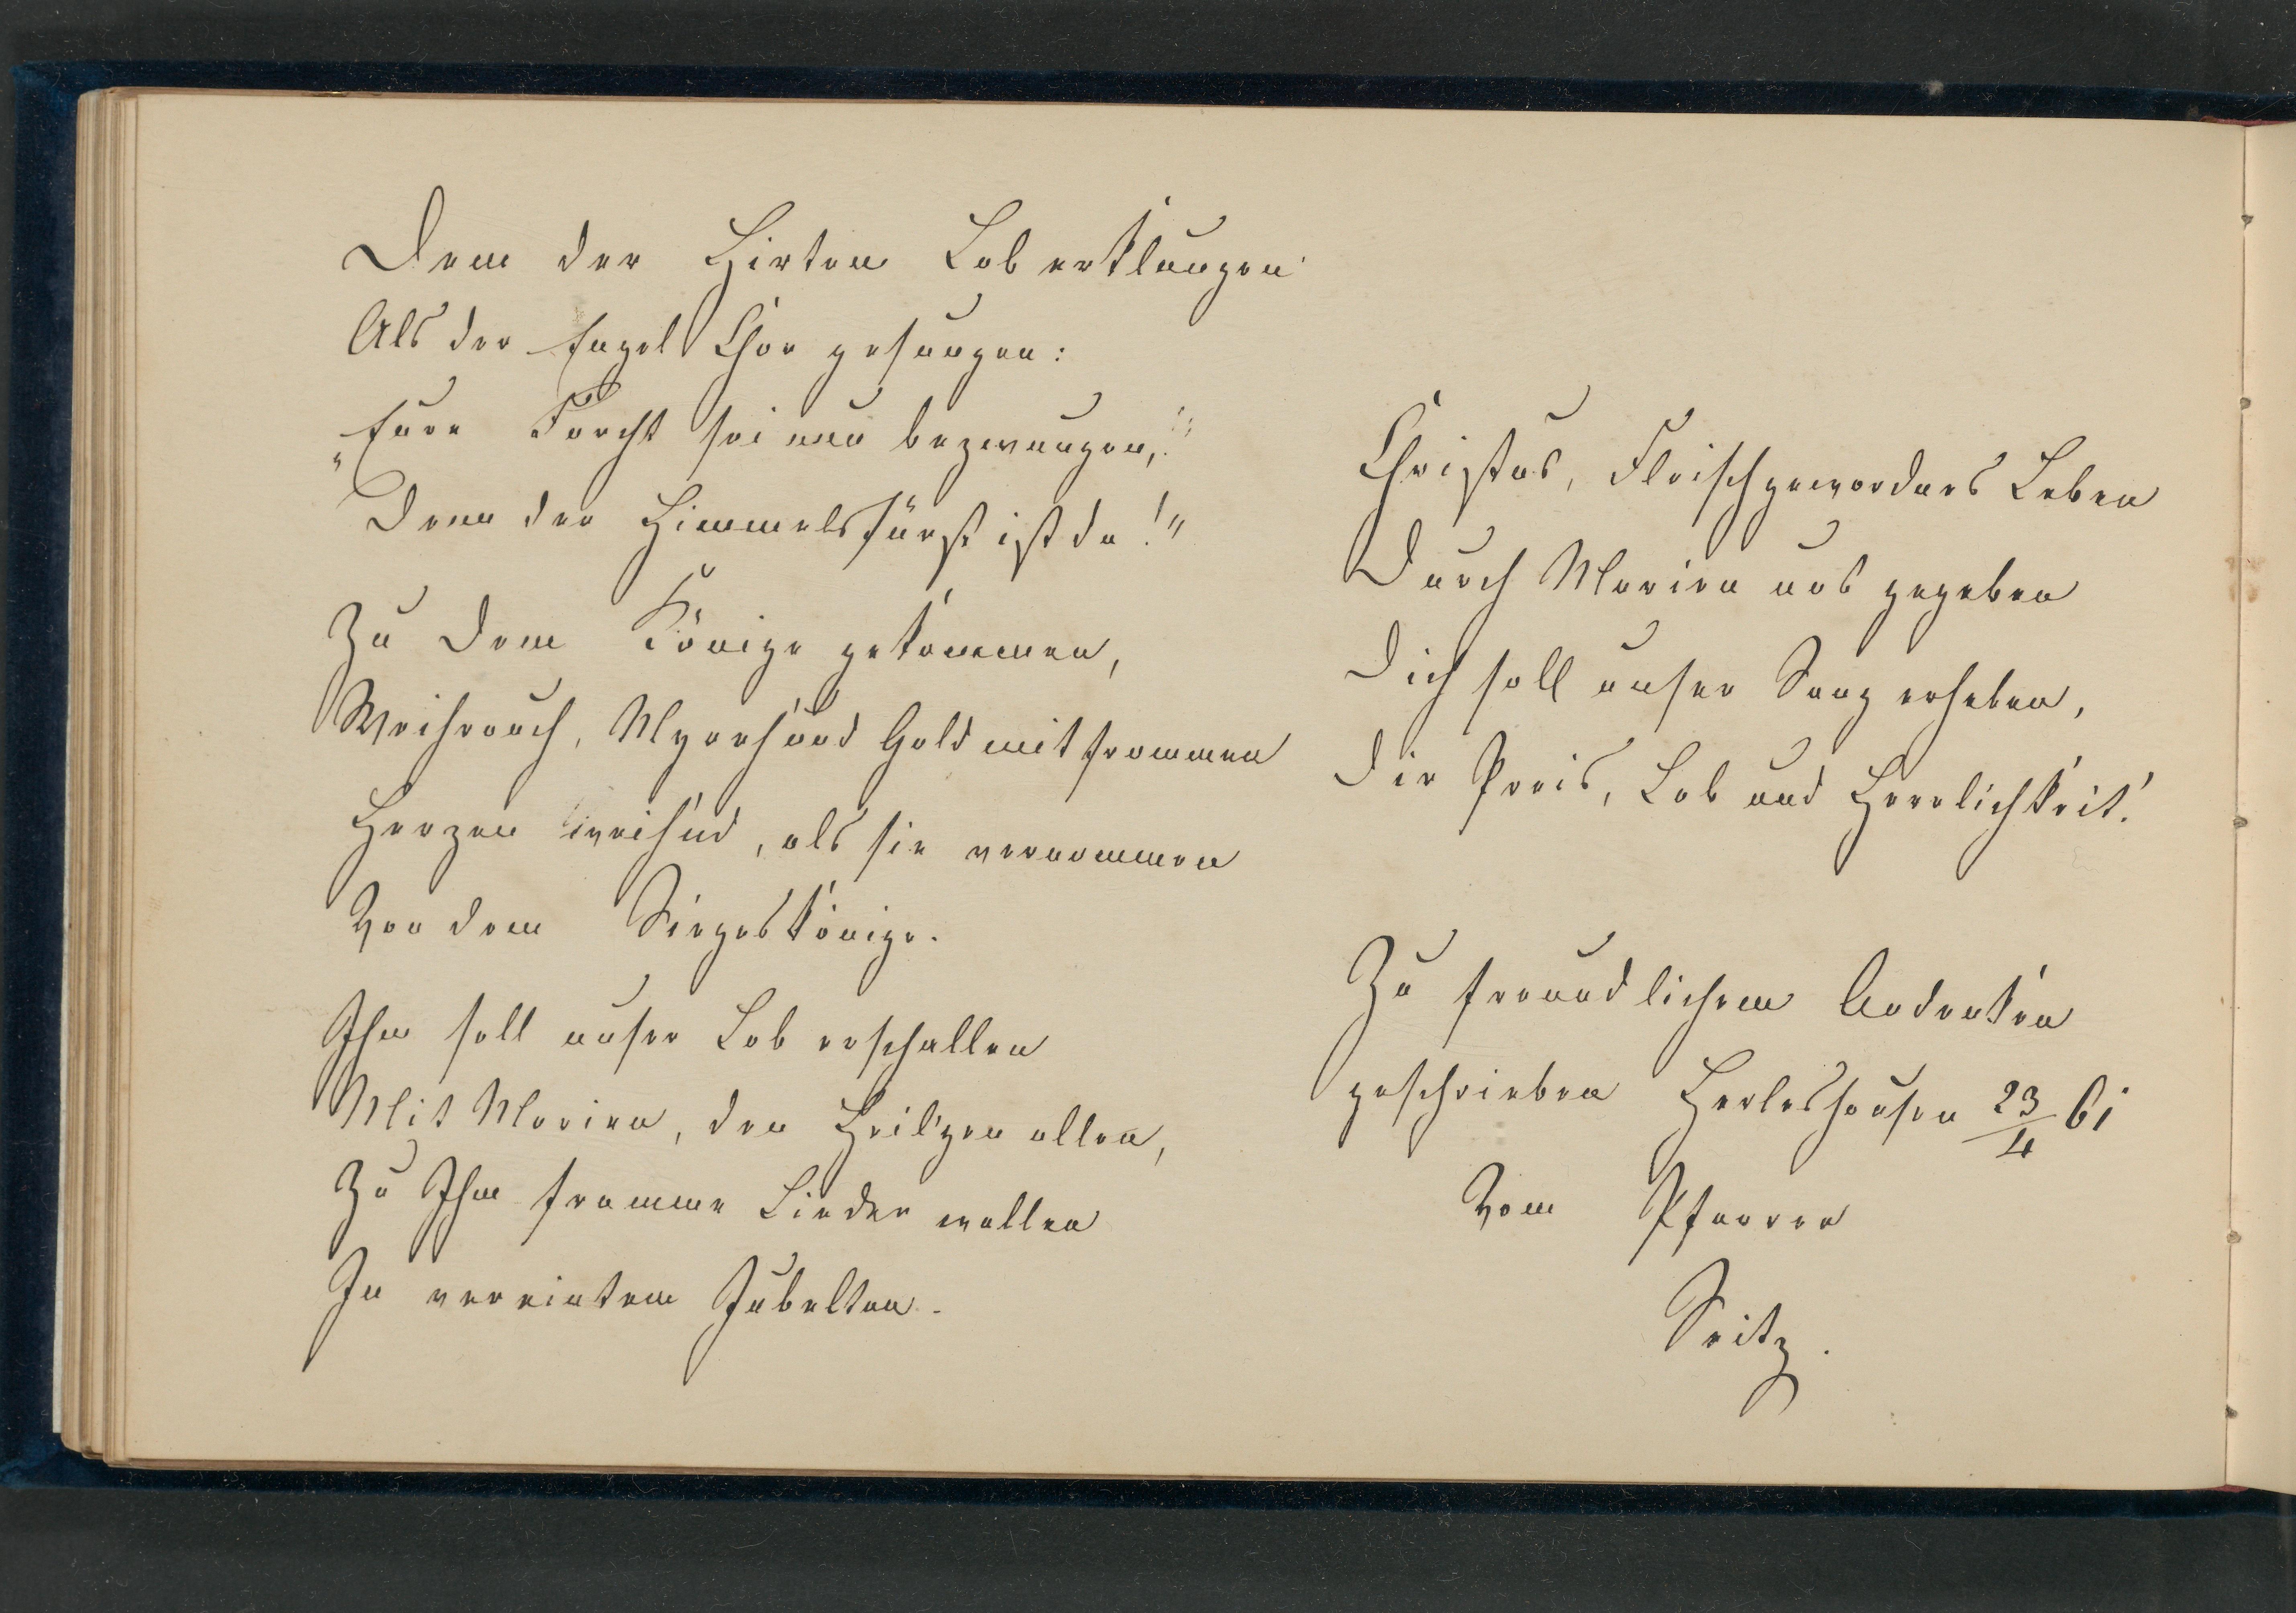 Dem der Hirten Lob erklungen
Als der Engel Chor gesungen:
„Eure Forcht sei nun bezwungen,
Denn der Himmelsfürst ist da!"
Zu Dem Könige gekommen,
Weihrauch, Myrrh und Gold mit frommen
Herzen weih'nd, als sie vernommen
Von dem Siegeskönige.
Ihm soll unser Lob erschallen
Mit Marien, den Heil'gen allen,
Zu Ihm fromme Lieder wallen
In vereintem Jubelton.
Christus, Fleischgewordnes Leben
Durch Marien uns gegeben
Dich soll unser Sang erheben,
Dir Preis, Lob und Herrlichkeit!
Zu freundlichem Andenken
geschrieben Herleshausen 23/4 61
Vom Pfarrer
Seitz.